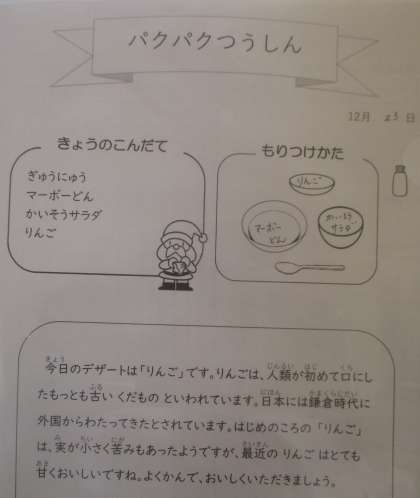 パクパクつうしん
12月 23 日
きょうのこんだて
ぎゅうにゅう
マーボーどん
かいそうサラダ
りんご
もりつけかた
りんご
マーボー
どん
かいそう
サラダ
今日のデザートは「りんご」です。りんごは、人類が初めて口にし
たもっとも古い くだもの といわれています。日本には鎌倉時代に
外国からわたってきたとされています。はじめのころの「りんご」
は、実が小さく苦みもあったようですが、最近の りんご はとても
甘くおいしいですね。よくかんで、おいしくいただきましょう。